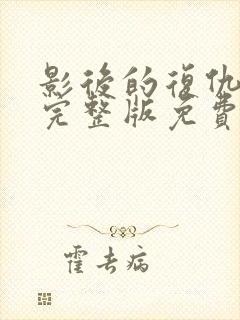 影後的復仇
完整版免費
霍去病